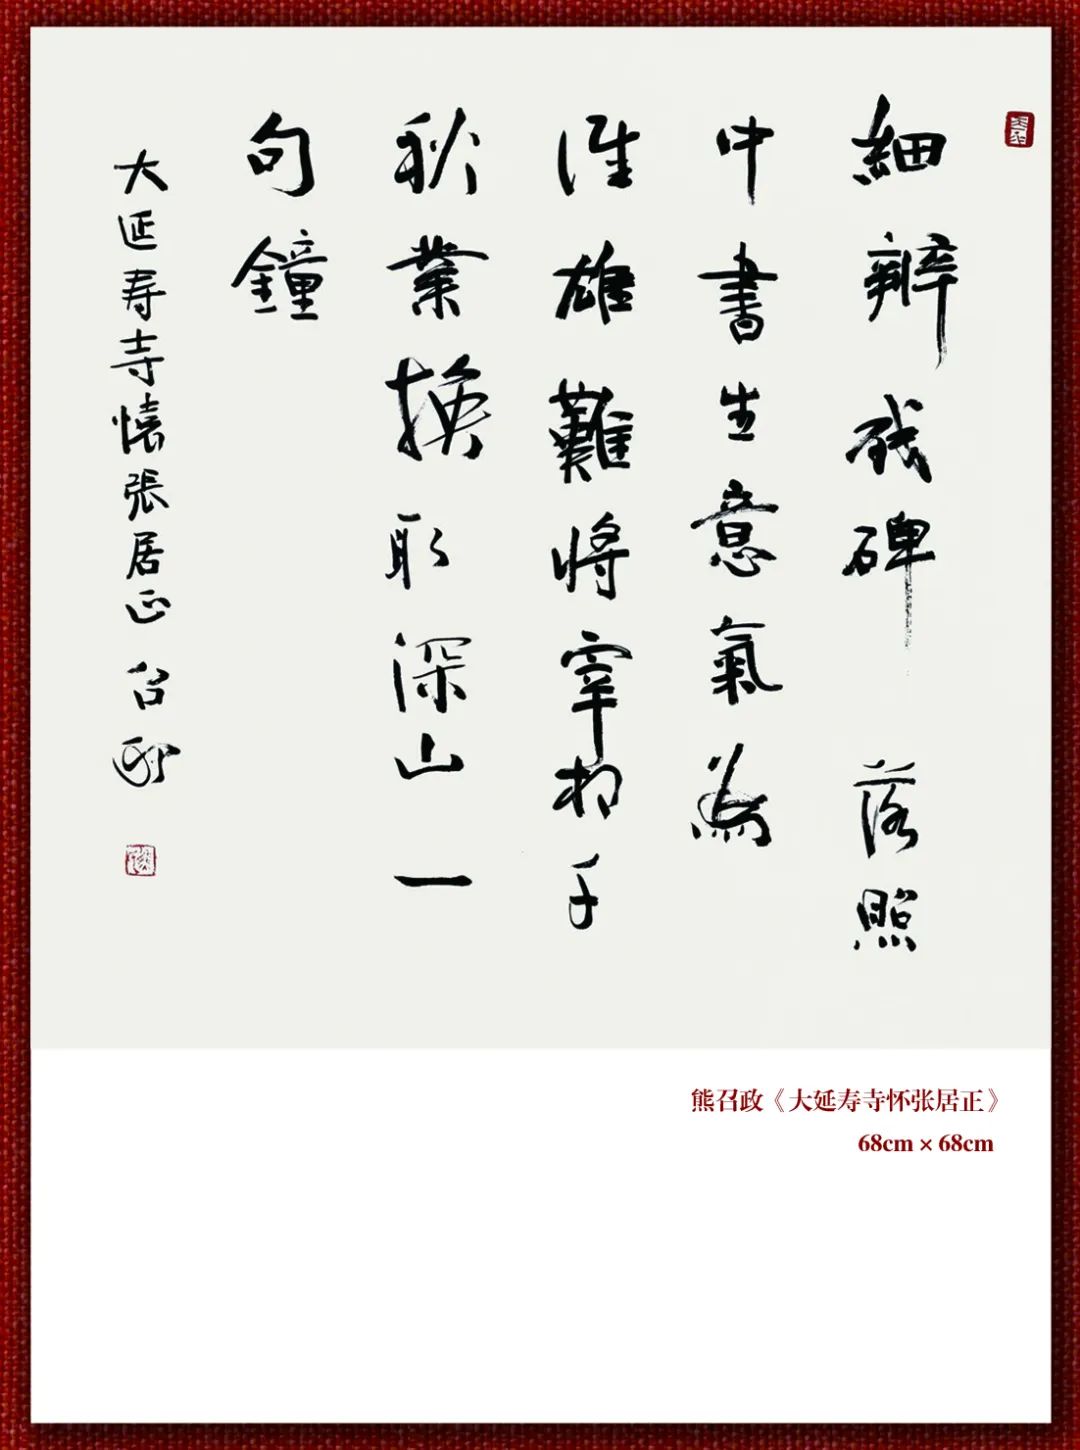 細辨残碑落照
中書生意氣為
誰雄難將宰相千
秋業換取深山一
句鐘
大延寿寺懷張居正 召政
熊召政《大延寿寺怀张居正》
68cm × 68cm